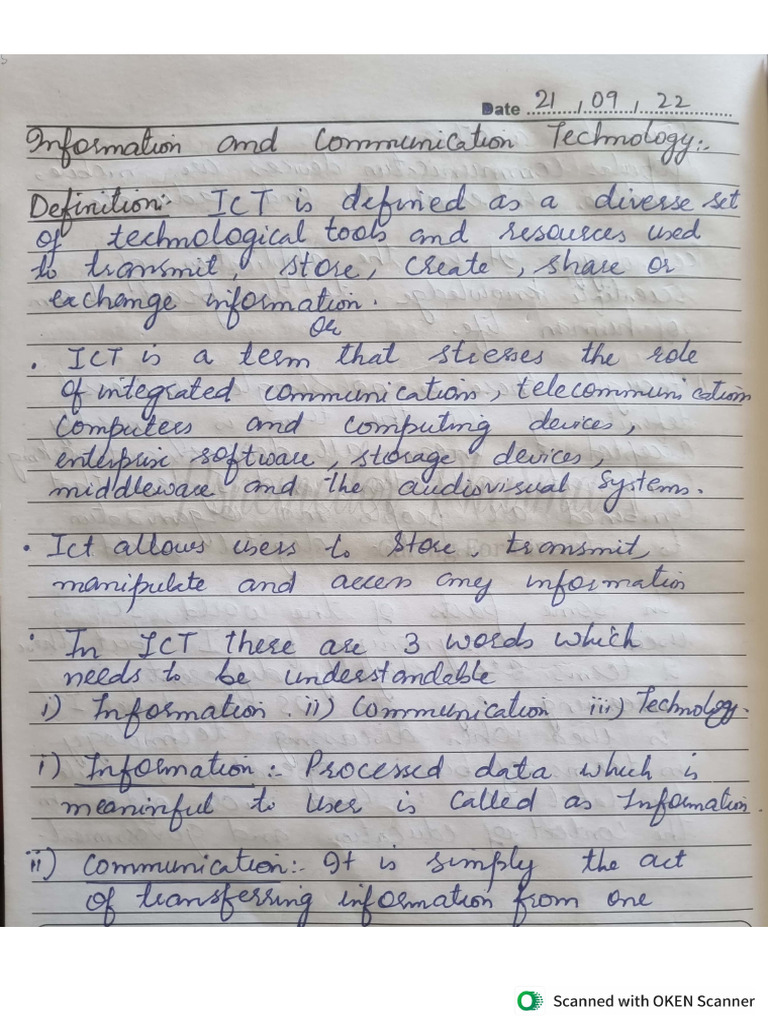 Date 21, 09, 22
Information and Communication Technology:-
Definition:- ICT is defined as a diverse set
of technological tools and resources used
to transmit, store, create, share or
exchange information.
Or
. ICT is a term that stresses the role
of integrated communications, telecommunication
computers and computing devices,
enterprise software, storage devices,
middleware and the audiovisual systems.
. Ict allows users to store, transmit,
manipulate and access any information
. In ICT there are 3 words which
needs to be understandable
i) Information. ii) Communication iii) Technology.
i) Information:- Processed data which is
meaninful to user is called as Information.
ii) Communication:- It is simply the act
of transferring information from one
Scanned with OKEN Scanner